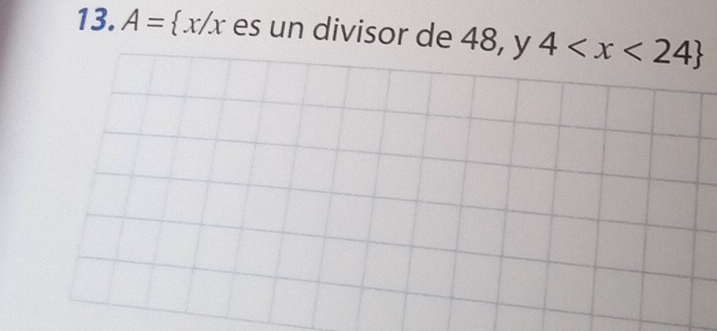 13. A = {x/x es un divisor de 48, y 4 < x < 24}